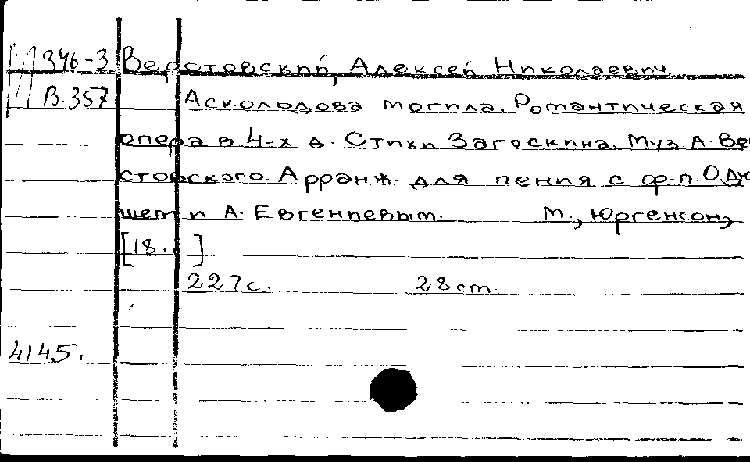 Ц 346-3 Верстовский, Алексей Николаевич
В.357 Аскольдова могила. Романтическая
опера в 4-х д. Стихи Загоскина. Муз. А. Вер
стовского Арранж. для пения с ф.п. О. Дю
шет и А. Евгениевым. М., Юргенсон,
[18. ]
227с. 28cm.
4145.